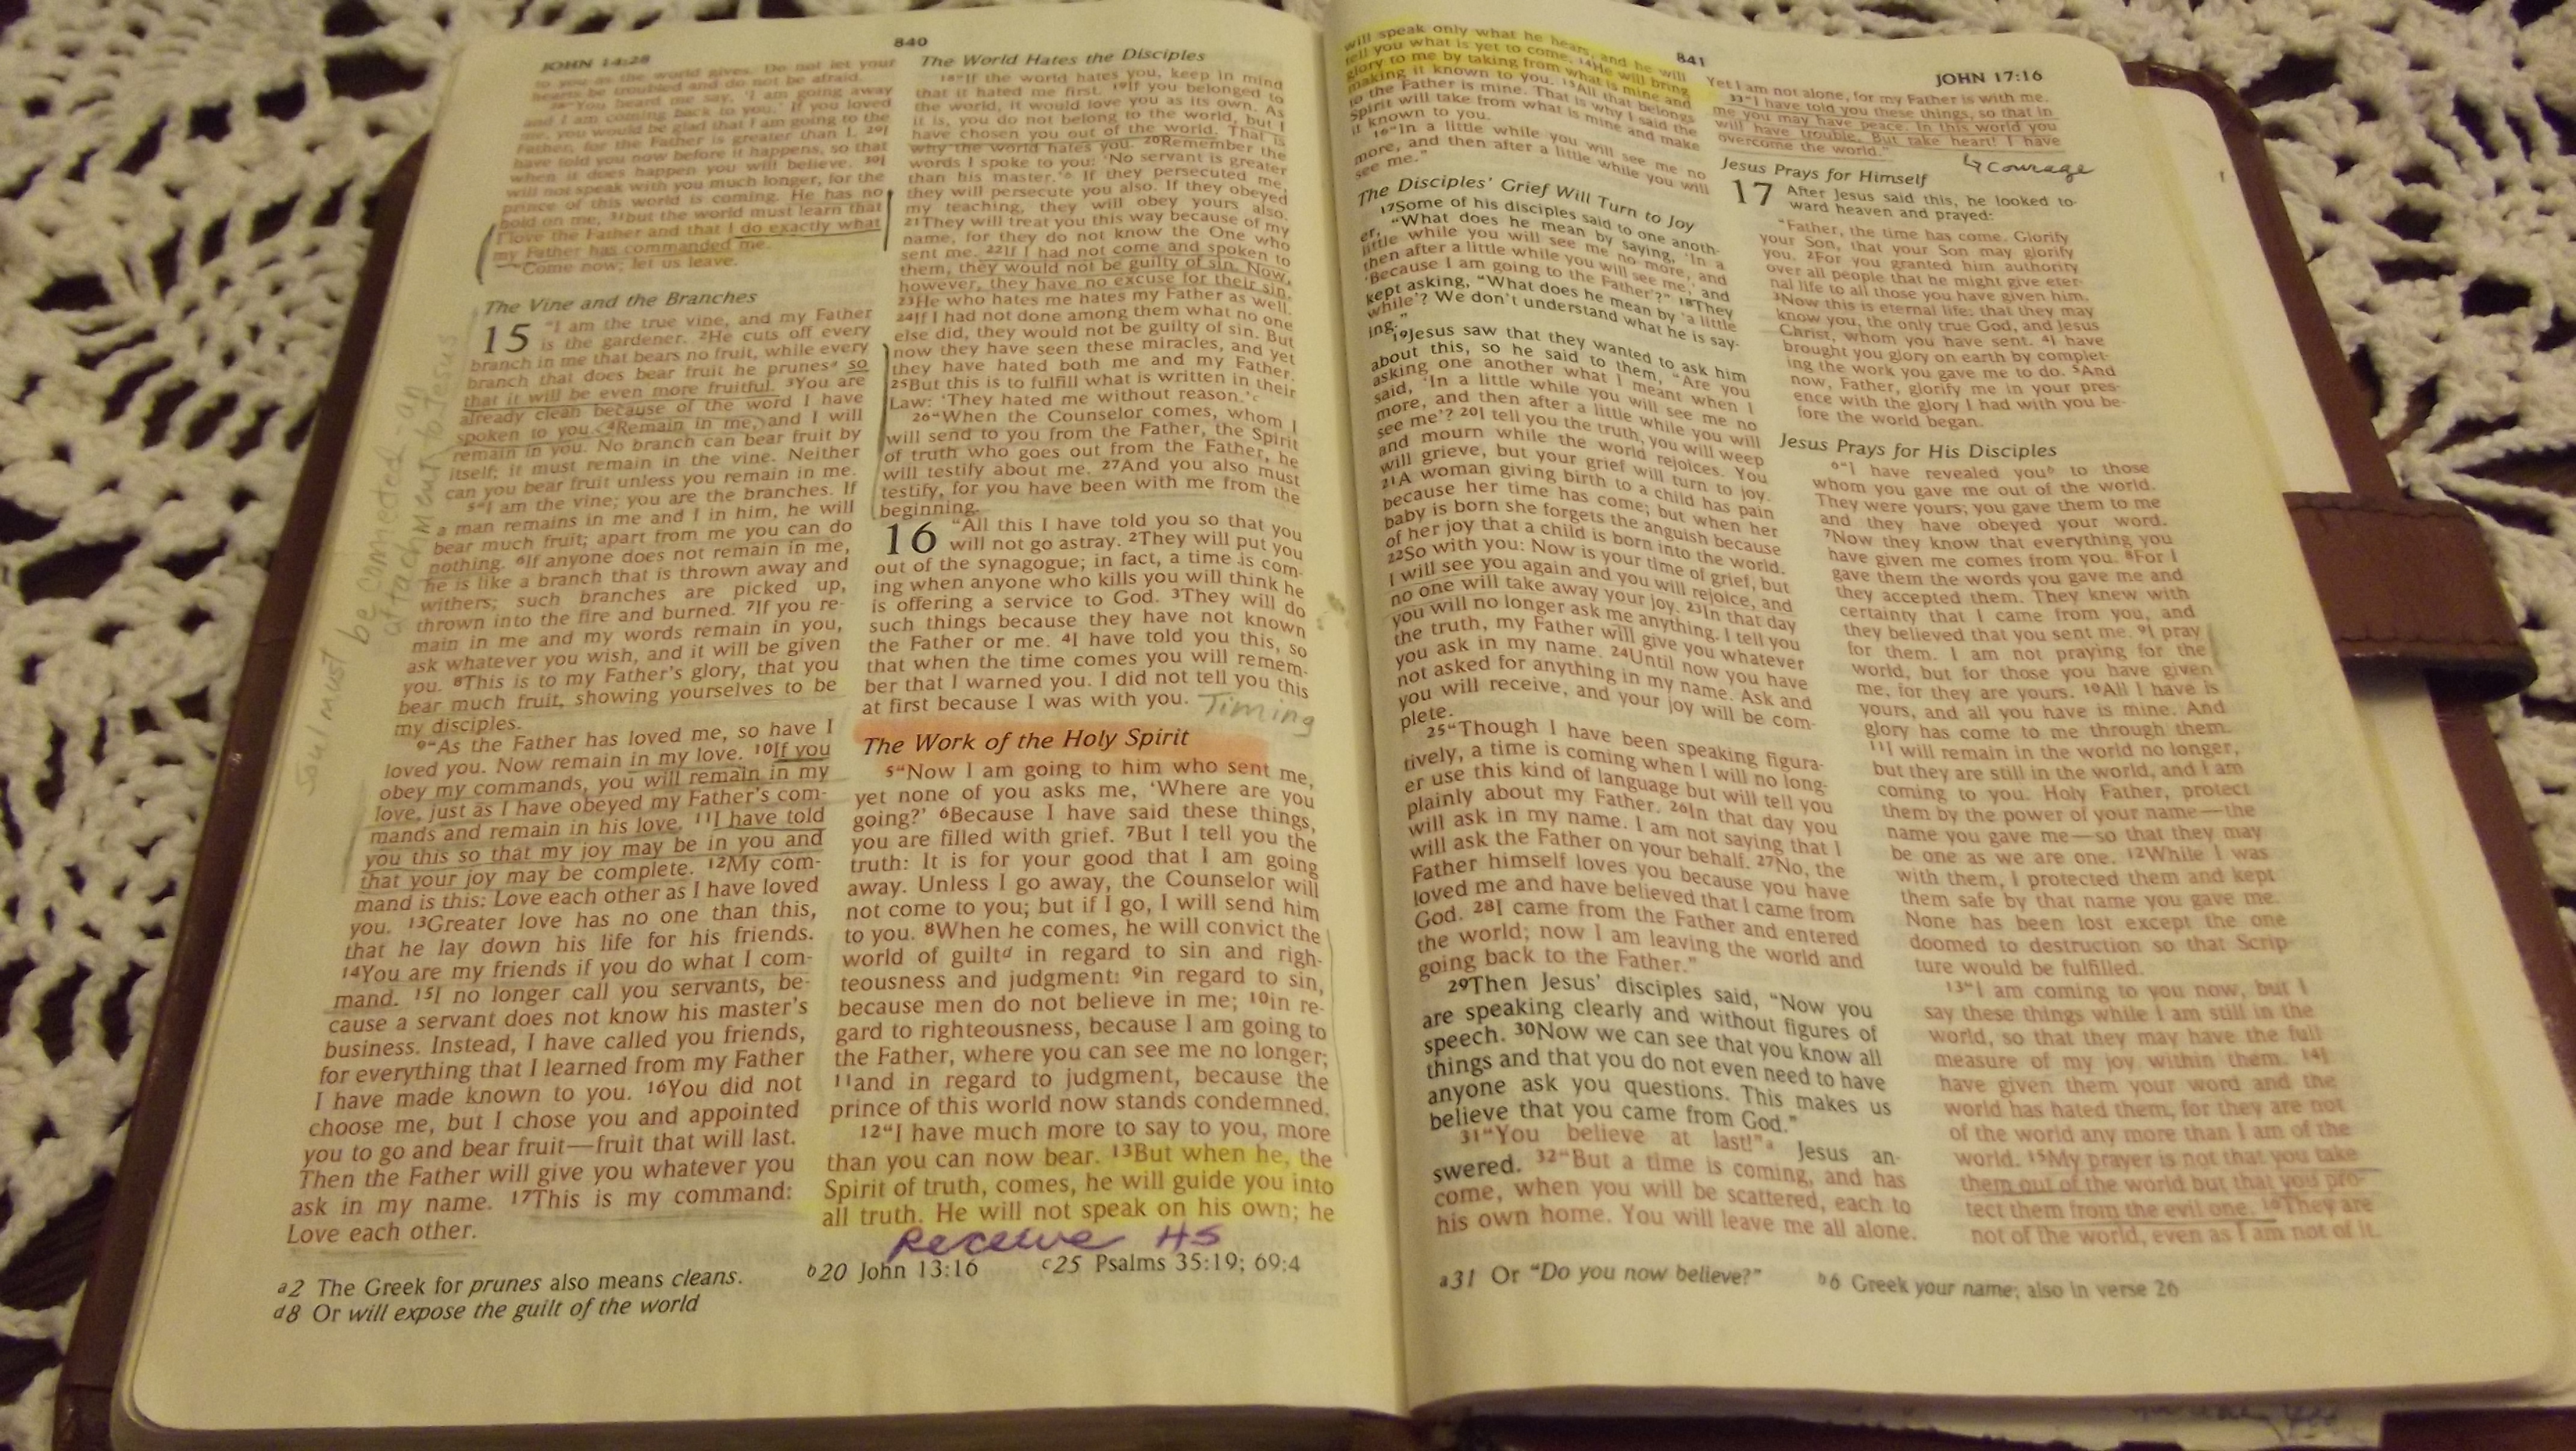 JOHN 14:28
840
to you as the world gives. Do not let your
hearts be troubled and do not be afraid.
28"You heard me say, 'I am going away
and I am coming back to you.' If you loved
me, you would be glad that I am going to the
Father, for the Father is greater than I. 29I
have told you now before it happens, so that
when it does happen you will believe. 30I
will not speak with you much longer, for the
prince of this world is coming. He has no
hold on me, 31but the world must learn that
I love the Father and that I do exactly what
my Father has commanded me.
"Come now; let us leave.
The Vine and the Branches
15 "I am the true vine, and my Father
is the gardener. 2He cuts off every
branch in me that bears no fruit, while every
branch that does bear fruit he prunesa so
that it will be even more fruitful. 3You are
already clean because of the word I have
spoken to you. 4Remain in me, and I will
remain in you. No branch can bear fruit by
itself; it must remain in the vine. Neither
can you bear fruit unless you remain in me.
5"I am the vine; you are the branches. If
a man remains in me and I in him, he will
bear much fruit; apart from me you can do
nothing. 6If anyone does not remain in me,
he is like a branch that is thrown away and
withers; such branches are picked up,
thrown into the fire and burned. 7If you re-
main in me and my words remain in you,
ask whatever you wish, and it will be given
you. 8This is to my Father's glory, that you
bear much fruit, showing yourselves to be
my disciples.
9"As the Father has loved me, so have I
loved you. Now remain in my love. 10If you
obey my commands, you will remain in my
love, just as I have obeyed my Father's com-
mands and remain in his love. 11I have told
you this so that my joy may be in you and
that your joy may be complete. 12My com-
mand is this: Love each other as I have loved
you. 13Greater love has no one than this,
that he lay down his life for his friends.
14You are my friends if you do what I com-
mand. 15I no longer call you servants, be-
cause a servant does not know his master's
business. Instead, I have called you friends,
for everything that I learned from my Father
I have made known to you. 16You did not
choose me, but I chose you and appointed
you to go and bear fruit—fruit that will last.
Then the Father will give you whatever you
ask in my name. 17This is my command:
Love each other.
Soul must be connected - an
attachment to Jesus
The World Hates the Disciples
18"If the world hates you, keep in mind
that it hated me first. 19If you belonged to
the world, it would love you as its own. As
it is, you do not belong to the world, but I
have chosen you out of the world. That is
why the world hates you. 20Remember the
words I spoke to you: 'No servant is greater
than his master.'b If they persecuted me,
they will persecute you also. If they obeyed
my teaching, they will obey yours also.
21They will treat you this way because of my
name, for they do not know the One who
sent me. 22If I had not come and spoken to
them, they would not be guilty of sin. Now,
however, they have no excuse for their sin.
23He who hates me hates my Father as well.
24If I had not done among them what no one
else did, they would not be guilty of sin. But
now they have seen these miracles, and yet
they have hated both me and my Father.
25But this is to fulfill what is written in their
Law: 'They hated me without reason.'c
26"When the Counselor comes, whom I
will send to you from the Father, the Spirit
of truth who goes out from the Father, he
will testify about me. 27And you also must
testify, for you have been with me from the
beginning.
16 "All this I have told you so that you
will not go astray. 2They will put you
out of the synagogue; in fact, a time is com-
ing when anyone who kills you will think he
is offering a service to God. 3They will do
such things because they have not known
the Father or me. 4I have told you this, so
that when the time comes you will remem-
ber that I warned you. I did not tell you this
at first because I was with you. Timing
The Work of the Holy Spirit
5"Now I am going to him who sent me,
yet none of you asks me, 'Where are you
going?' 6Because I have said these things,
you are filled with grief. 7But I tell you the
truth: It is for your good that I am going
away. Unless I go away, the Counselor will
not come to you; but if I go, I will send him
to you. 8When he comes, he will convict the
world of guiltd in regard to sin and righ-
teousness and judgment: 9in regard to sin,
because men do not believe in me; 10in re-
gard to righteousness, because I am going to
the Father, where you can see me no longer;
11and in regard to judgment, because the
prince of this world now stands condemned.
12"I have much more to say to you, more
than you can now bear. 13But when he, the
Spirit of truth, comes, he will guide you into
all truth. He will not speak on his own; he
Receive HS
a2 The Greek for prunes also means cleans. b20 John 13:16 c25 Psalms 35:19; 69:4
d8 Or will expose the guilt of the world
841
JOHN 17:16
will speak only what he hears, and he will
tell you what is yet to come. 14He will bring
glory to me by taking from what is mine and
making it known to you. 15All that belongs
to the Father is mine. That is why I said the
Spirit will take from what is mine and make
it known to you.
16"In a little while you will see me no
more, and then after a little while you will
see me."
The Disciples' Grief Will Turn to Joy
17Some of his disciples said to one anoth-
er, "What does he mean by saying, 'In a
little while you will see me no more, and
then after a little while you will see me,' and
'Because I am going to the Father'?" 18They
kept asking, "What does he mean by 'a little
while'? We don't understand what he is say-
ing."
19Jesus saw that they wanted to ask him
about this, so he said to them, "Are you
asking one another what I meant when I
said, 'In a little while you will see me no
more, and then after a little while you will
see me'? 20I tell you the truth, you will weep
and mourn while the world rejoices. You
will grieve, but your grief will turn to joy.
21A woman giving birth to a child has pain
because her time has come; but when her
baby is born she forgets the anguish because
of her joy that a child is born into the world.
22So with you: Now is your time of grief, but
I will see you again and you will rejoice, and
no one will take away your joy. 23In that day
you will no longer ask me anything. I tell you
the truth, my Father will give you whatever
you ask in my name. 24Until now you have
not asked for anything in my name. Ask and
you will receive, and your joy will be com-
plete.
25"Though I have been speaking figura-
tively, a time is coming when I will no long-
er use this kind of language but will tell you
plainly about my Father. 26In that day you
will ask in my name. I am not saying that I
will ask the Father on your behalf. 27No, the
Father himself loves you because you have
loved me and have believed that I came from
God. 28I came from the Father and entered
the world; now I am leaving the world and
going back to the Father."
29Then Jesus' disciples said, "Now you
are speaking clearly and without figures of
speech. 30Now we can see that you know all
things and that you do not even need to have
anyone ask you questions. This makes us
believe that you came from God."
31"You believe at last!"a Jesus an-
swered. 32"But a time is coming, and has
come, when you will be scattered, each to
his own home. You will leave me all alone.
Yet I am not alone, for my Father is with me.
33"I have told you these things, so that in
me you may have peace. In this world you
will have trouble. But take heart! I have
overcome the world."
↳ Courage
Jesus Prays for Himself
17 After Jesus said this, he looked to-
ward heaven and prayed:
"Father, the time has come. Glorify
your Son, that your Son may glorify
you. 2For you granted him authority
over all people that he might give eter-
nal life to all those you have given him.
3Now this is eternal life: that they may
know you, the only true God, and Jesus
Christ, whom you have sent. 4I have
brought you glory on earth by complet-
ing the work you gave me to do. 5And
now, Father, glorify me in your pres-
ence with the glory I had with you be-
fore the world began.
Jesus Prays for His Disciples
6"I have revealed youb to those
whom you gave me out of the world.
They were yours; you gave them to me
and they have obeyed your word.
7Now they know that everything you
have given me comes from you. 8For I
gave them the words you gave me and
they accepted them. They knew with
certainty that I came from you, and
they believed that you sent me. 9I pray
for them. I am not praying for the
world, but for those you have given
me, for they are yours. 10All I have is
yours, and all you have is mine. And
glory has come to me through them.
11I will remain in the world no longer,
but they are still in the world, and I am
coming to you. Holy Father, protect
them by the power of your name—the
name you gave me—so that they may
be one as we are one. 12While I was
with them, I protected them and kept
them safe by that name you gave me.
None has been lost except the one
doomed to destruction so that Scrip-
ture would be fulfilled.
13"I am coming to you now, but I
say these things while I am still in the
world, so that they may have the full
measure of my joy within them. 14I
have given them your word and the
world has hated them, for they are not
of the world any more than I am of the
world. 15My prayer is not that you take
them out of the world but that you pro-
tect them from the evil one. 16They are
not of the world, even as I am not of it.
a31 Or "Do you now believe?" b6 Greek your name; also in verse 26